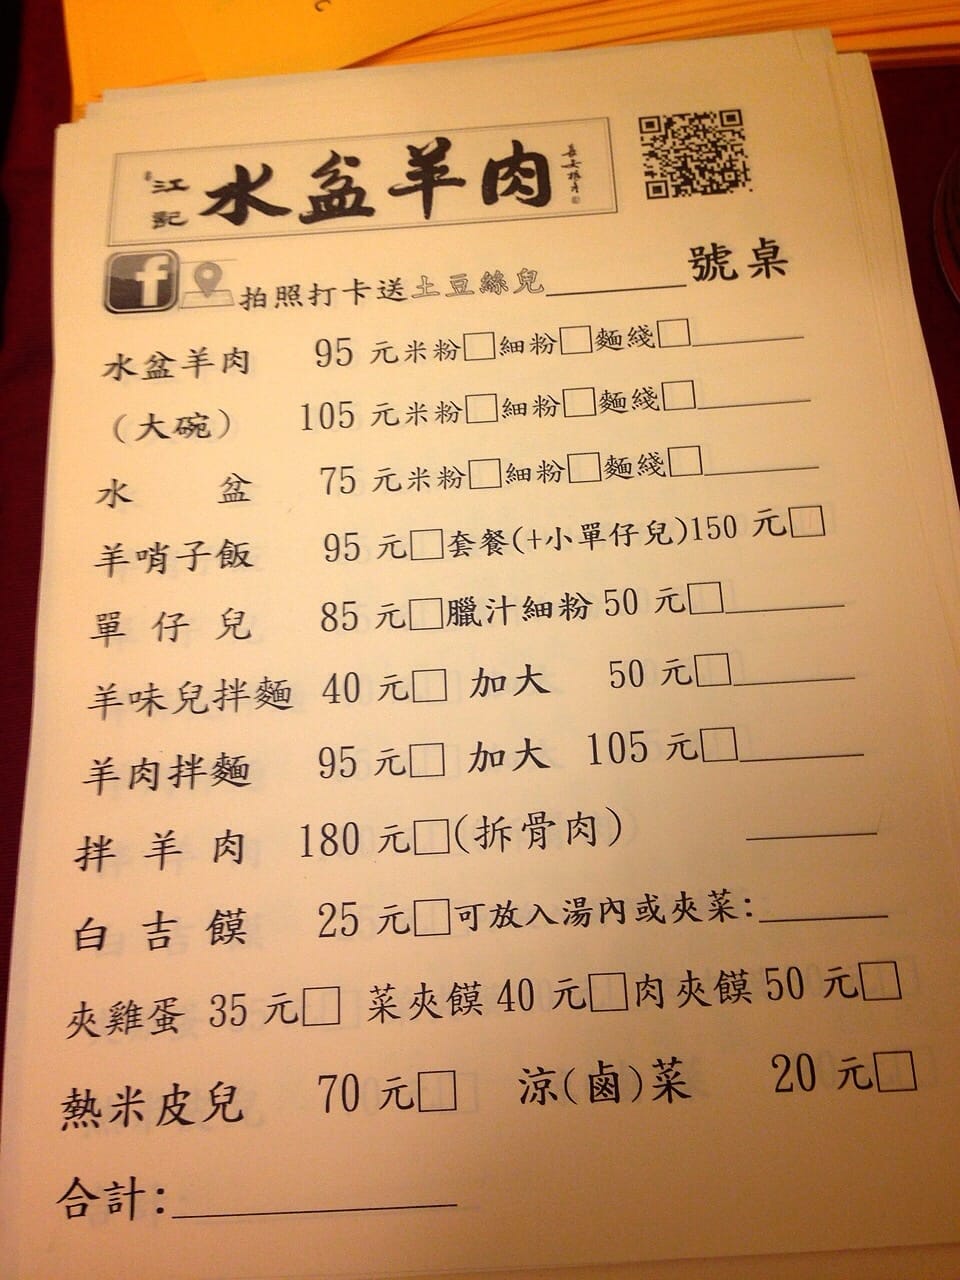 江記 水盆羊肉
拍照打卡送土豆絲兒______號桌
水盆羊肉 95 元米粉□細粉□麵綫□______
（大碗） 105 元米粉□細粉□麵綫□______
水 盆 75 元米粉□細粉□麵綫□______
羊哨子飯 95 元□套餐(+小單仔兒)150 元□
單仔兒 85 元□臘汁細粉 50 元□______
羊味兒拌麵 40 元□ 加大 50 元□______
羊肉拌麵 95 元□ 加大 105 元□______
拌羊肉 180 元□(拆骨肉) ______
白吉饃 25 元□可放入湯內或夾菜:______
夾雞蛋 35 元□ 菜夾饃 40 元□肉夾饃 50 元□
熱米皮兒 70 元□ 涼(鹵)菜 20 元□
合計:______